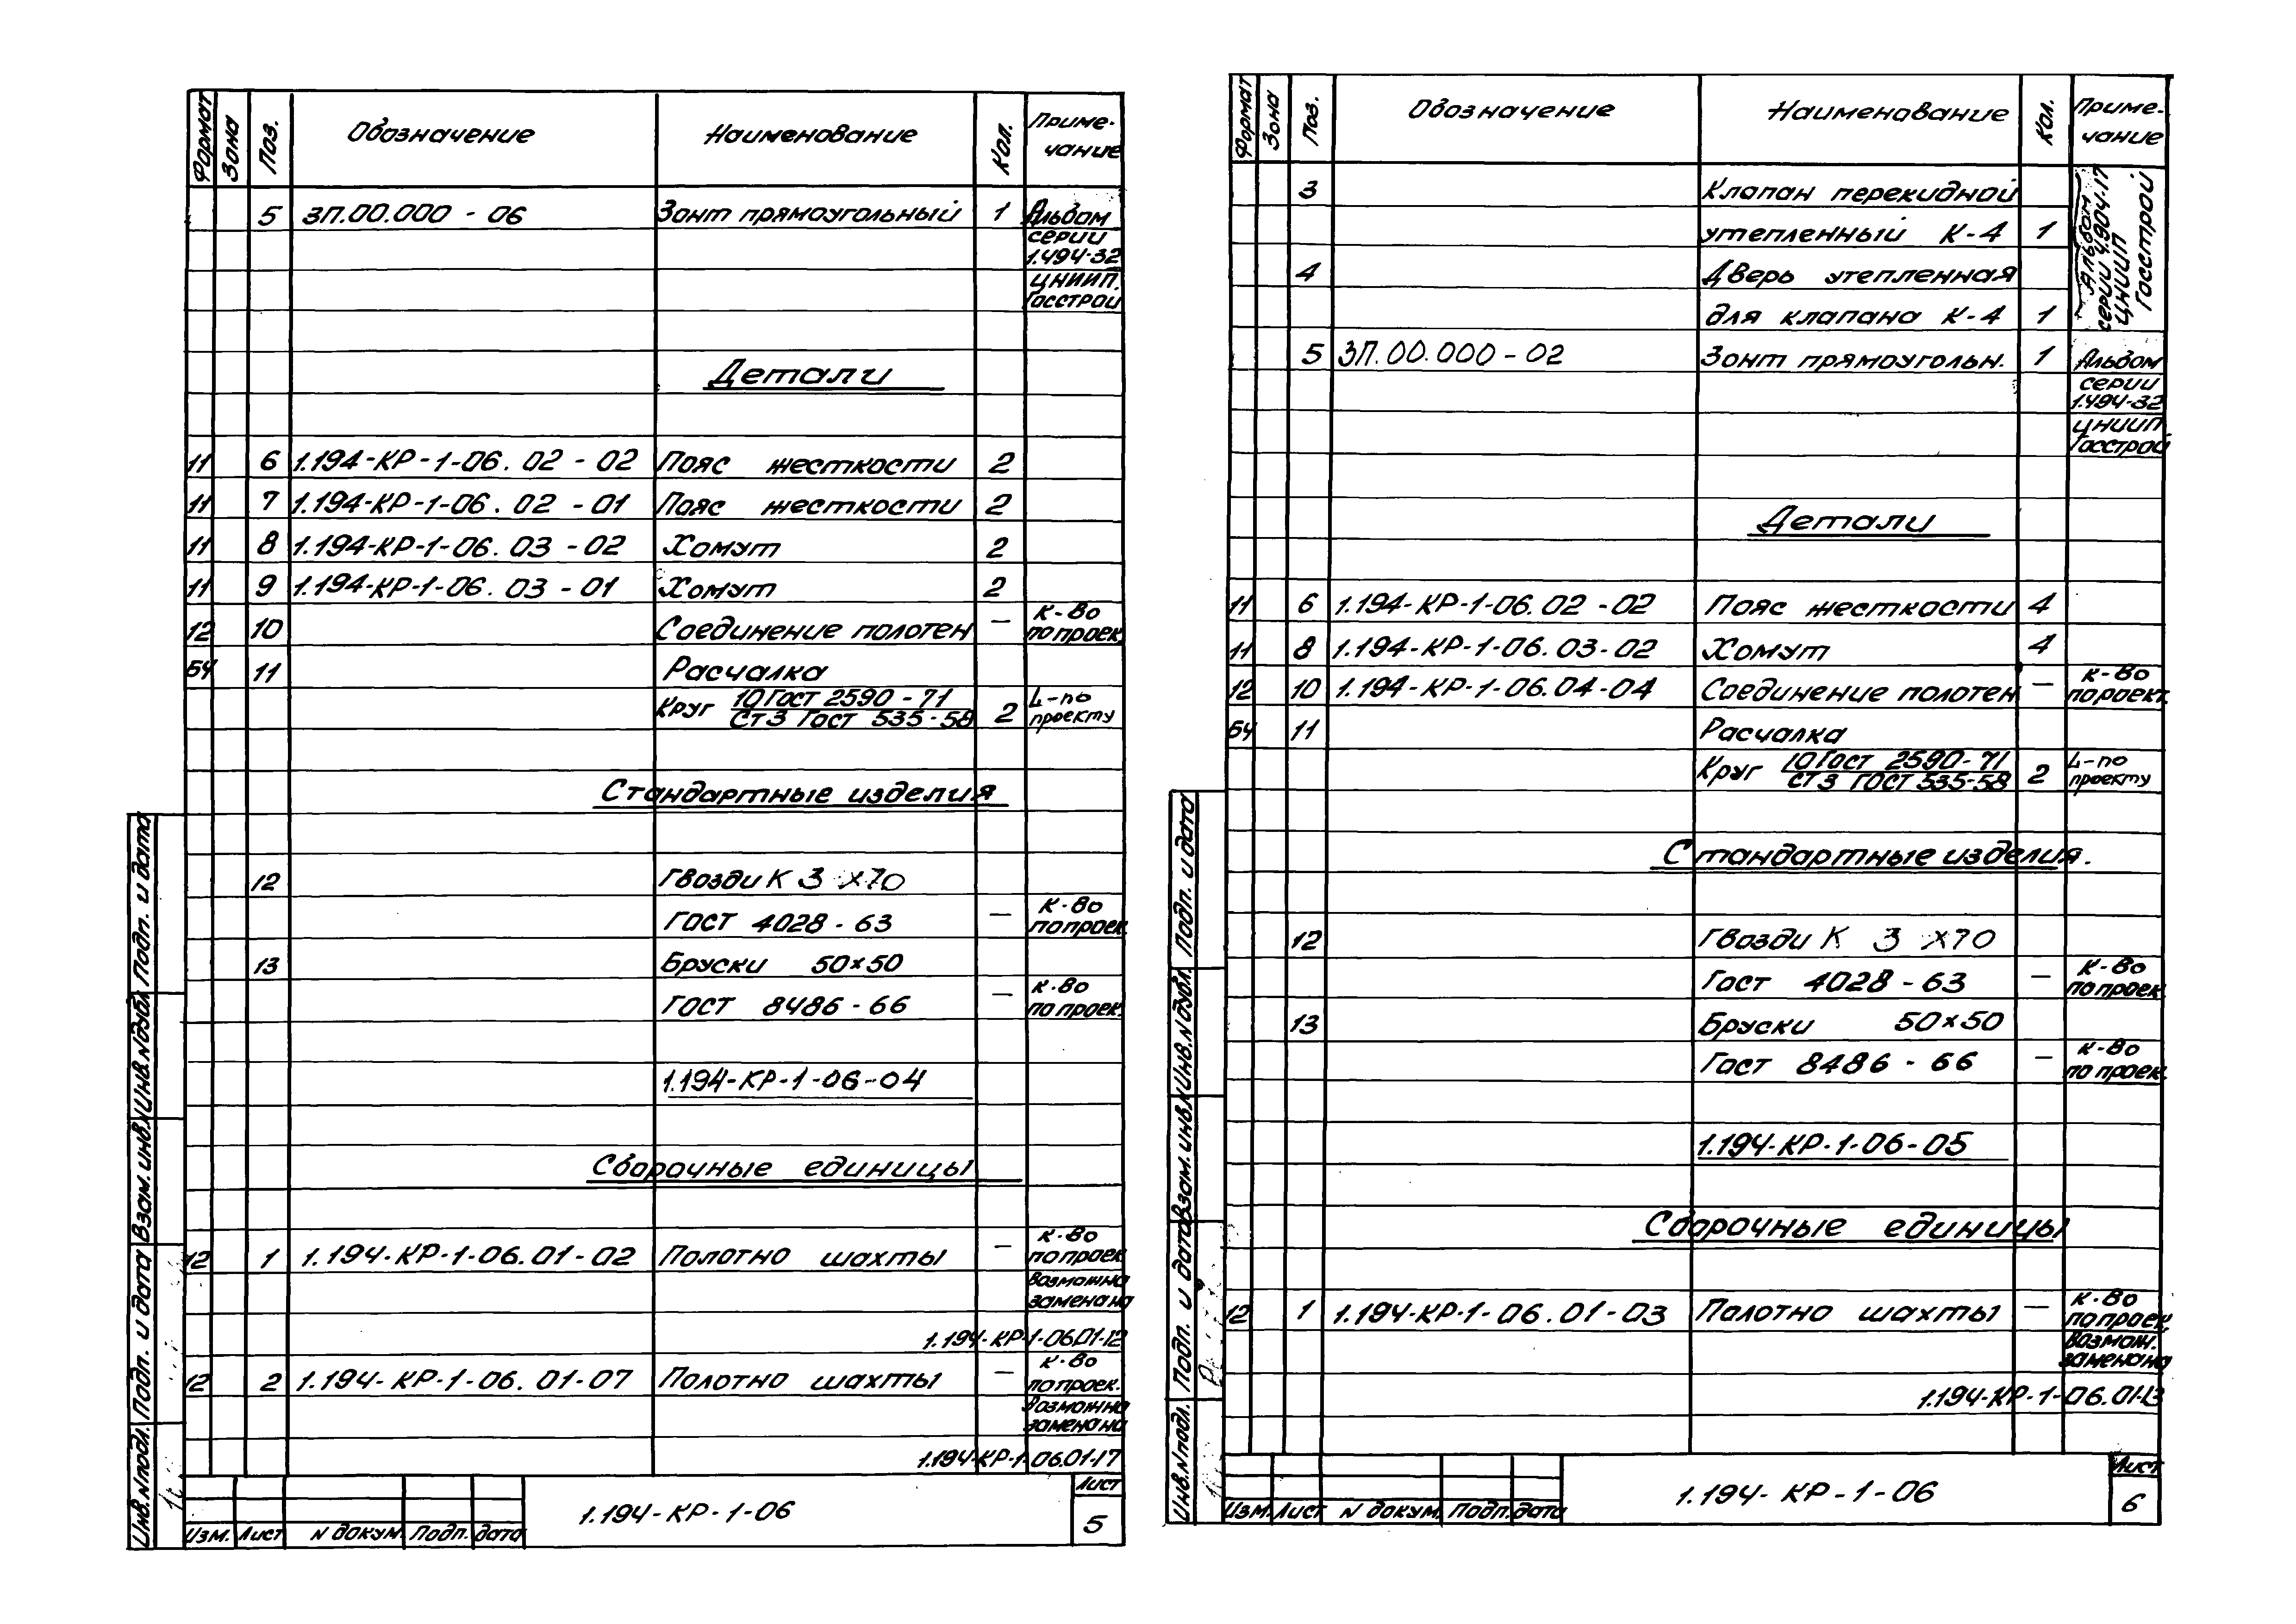 Формат Зона Поз. Обозначение Наименование Кол. Приме-
чание
5 ЗП.00.000 - 06 Зонт прямоугольный 1 Альбом
серии
1.494-32
ЦНИИП.
Госстрой
Детали
11 6 1.194-КР-1-06.02-02 Пояс жесткости 2
11 7 1.194-КР-1-06.02-01 Пояс жесткости 2
11 8 1.194-КР-1-06.03-02 Хомут 2
11 9 1.194-КР-1-06.03-01 Хомут 2
12 10 Соединение полотен — к-во
по проек.
БЧ 11 Расчалка
Круг 10 Гост 2590-71 / Ст3 Гост 535-58 2 L-по
проекту
Стандартные изделия
12 Гвозди К 3 х70
Гост 4028-63 — к-во
по проек.
13 Бруски 50×50
Гост 8486-66 — к-во
по проек.
1.194-КР-1-06-04
Сборочные единицы
12 1 1.194-КР-1-06.01-02 Полотно шахты — к-во
по проек.
Возможна
замена на
1.194-КР-1-06.01-12
12 2 1.194-КР-1-06.01-07 Полотно шахты — к-во
по проек.
Возможна
замена на
1.194-КР-1-06.01-17
Изм. Лист N докум. Подп. дата
1.194-КР-1-06
Лист
5
Инв.Nподл. Подп. и дата Взам.инв.N Инв.Nдубл. Подп. и дата
Формат Зона Поз. Обозначение Наименование Кол. Приме-
чание
3 Клапан перекидной
утепленный К-4 1
4 Дверь утепленная
для клапана К-4 1
Альбом
серии 4.904-17
ЦНИИП
Госстрой
5 ЗП.00.000-02 Зонт прямоугольн. 1 Альбом
серии
1.494-32
ЦНИИП.
Госстрой
Детали
11 6 1.194-КР-1-06.02-02 Пояс жесткости 4
11 8 1.194-КР-1-06.03-02 Хомут 4
12 10 1.194-КР-1-06.04-04 Соединение полотен — к-во
по роект.
БЧ 11 Расчалка
Круг 10 Гост 2590-71 / Ст3 Гост 535-58 2 L-по
проекту
Стандартные изделия.
12 Гвозди К 3 х70
Гост 4028-63 — к-во
по проек.
13 Бруски 50×50
Гост 8486-66 — к-во
по проек.
1.194-КР-1-06-05
Сборочные единицы
12 1 1.194-КР-1-06.01-03 Полотно шахты — к-во
по проек.
Возмож.
замена на
1.194-КР-1-06.01-13
Изм. Лист N докум. Подп. дата
1.194-КР-1-06
Лист
6
Инв.Nподл. Подп. и дата Взам.инв.N Инв.Nдубл. Подп. и дата